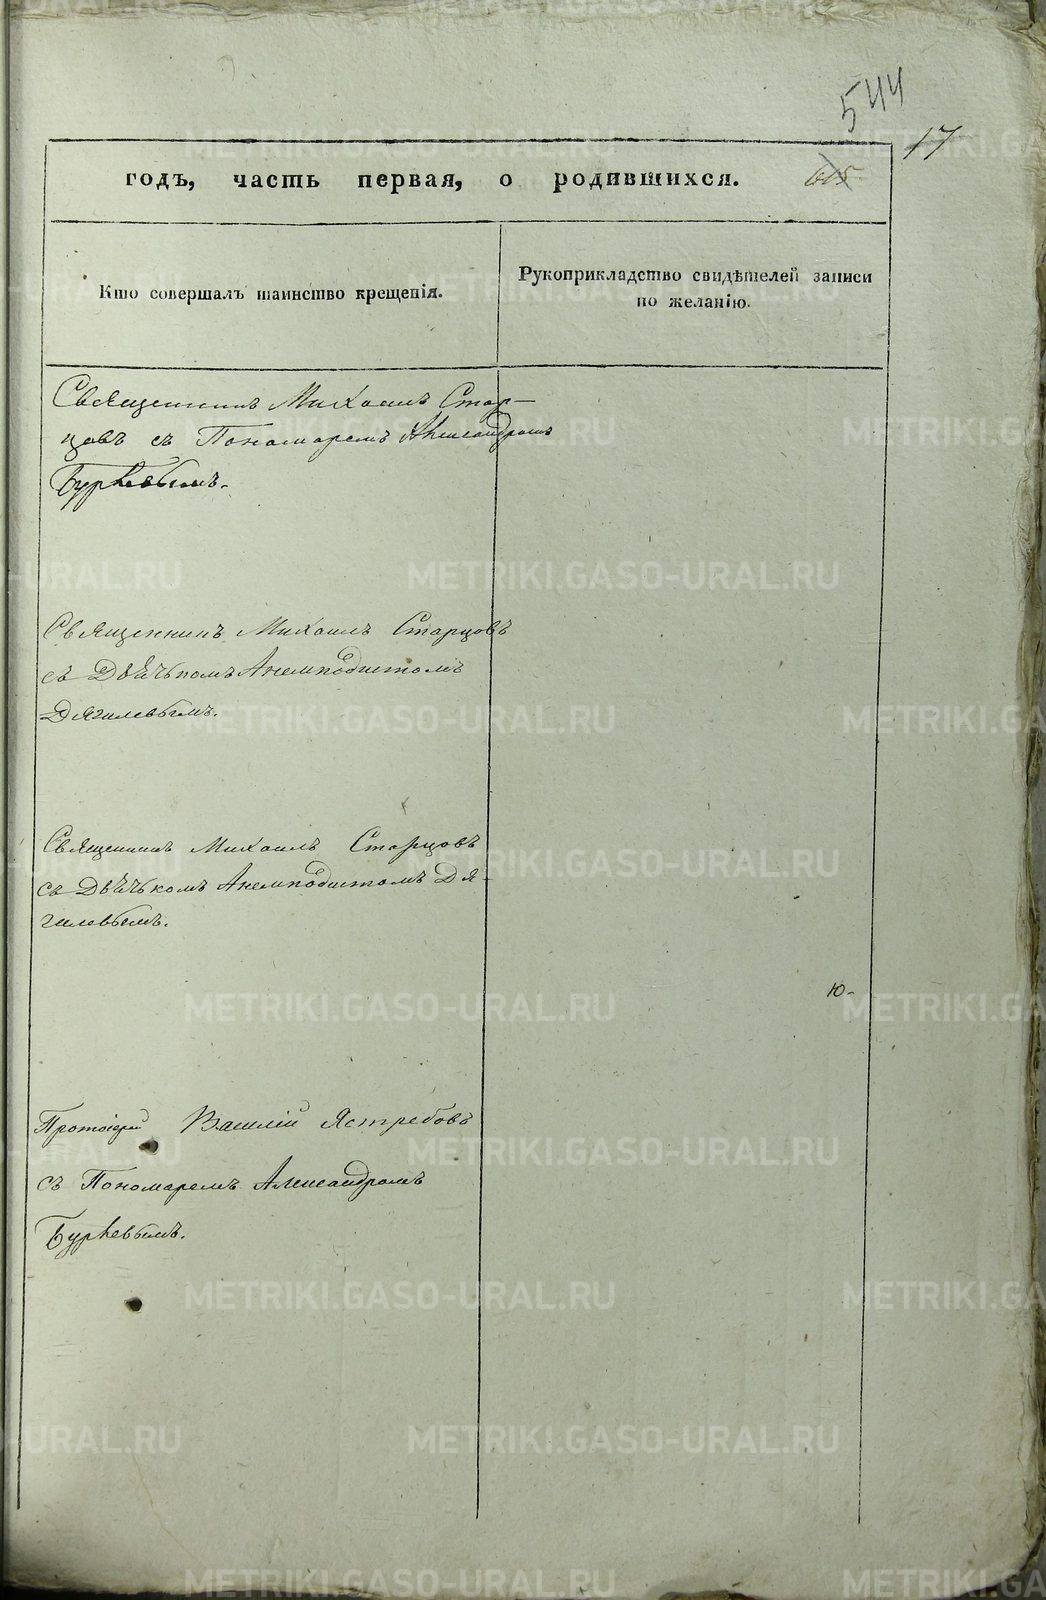 544
17
615
годъ, часть первая, о родившихся.
Кто совершалъ таинство крещенія.
Рукоприкладство свидѣтелей записи
по желанію.
Священникъ Михаилъ Стар-
цовъ съ Пономаремъ Александромъ
Бурневымъ.
Священникъ Михаилъ Старцовъ
съ Дьячькомъ Анемподистомъ
Дягилевымъ.
Священникъ Михаилъ Старцовъ
съ Дьячькомъ Анемподистомъ Дя-
гилевымъ.
Ю-
Протоіерей Василій Ястребовъ
съ Пономаремъ Александромъ
METRIKI.GASO-URAL.RU